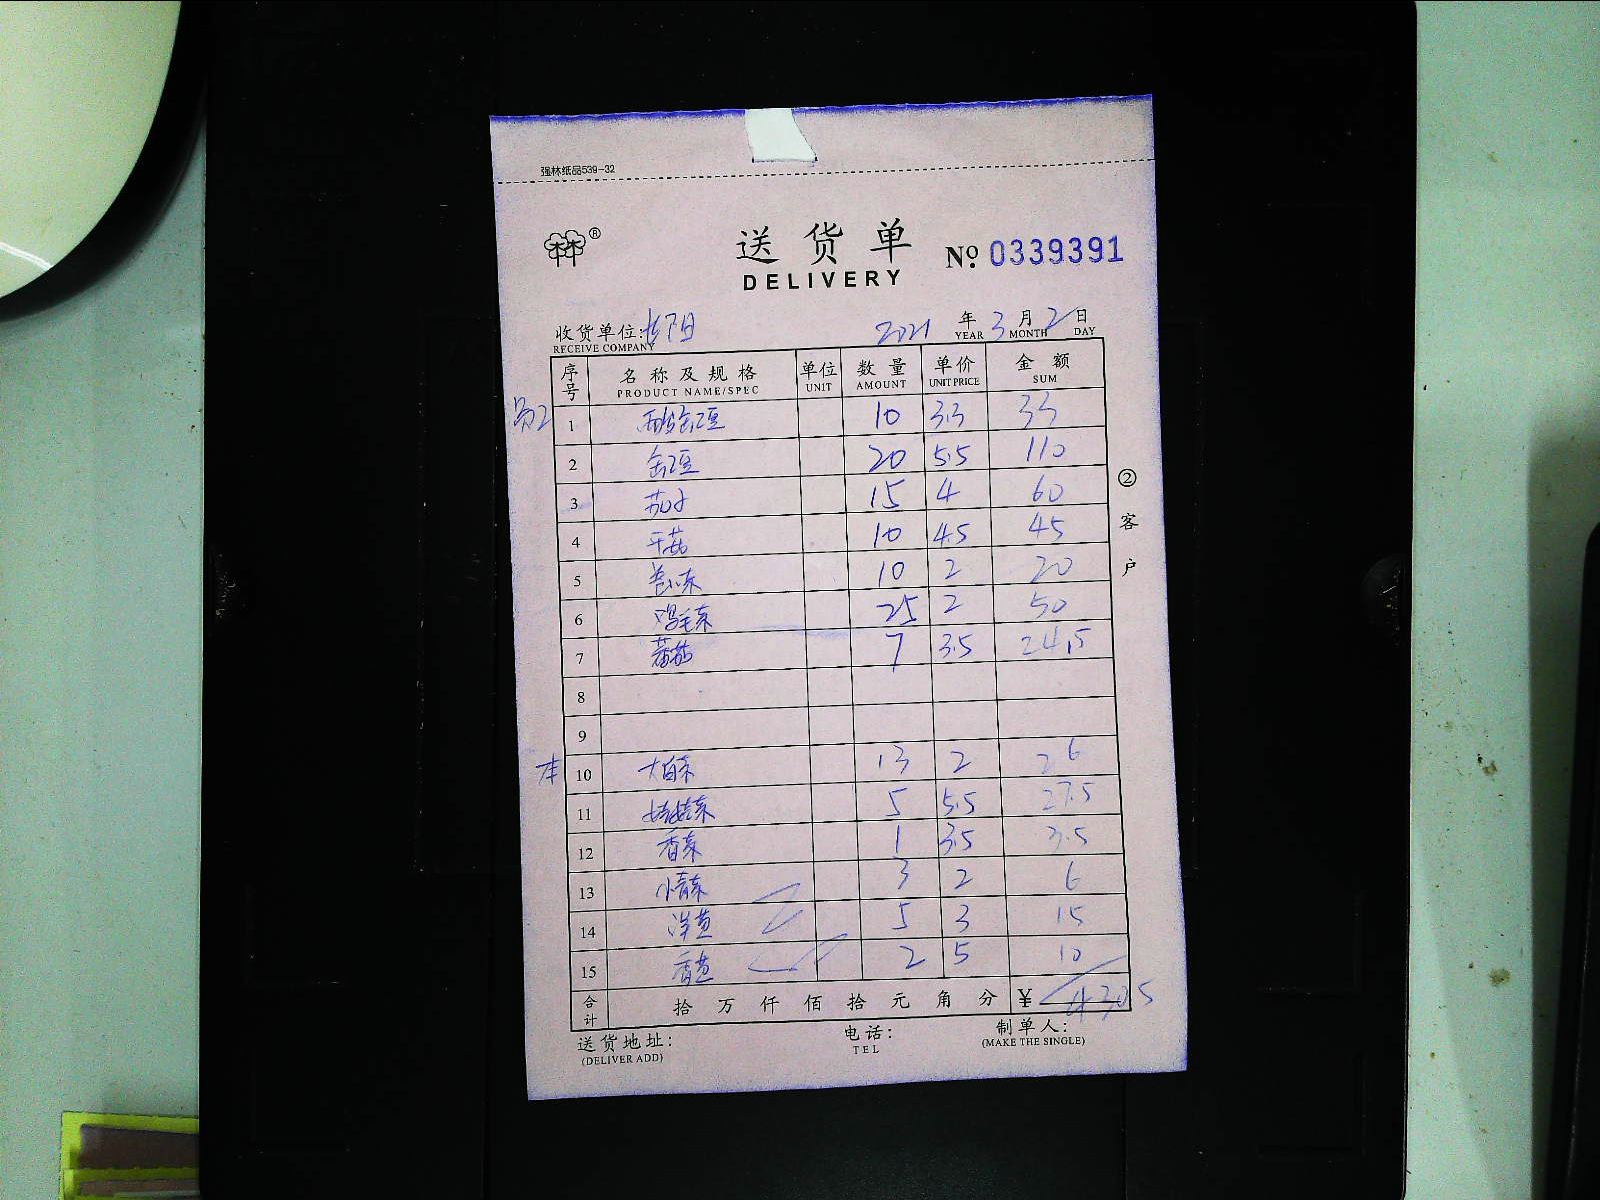 强林纸品539-32
林林®
送货单 № 0339391
DELIVERY
收货单位: 2021 年 3 月 2 日
RECEIVE COMPANY YEAR MONTH DAY
序号 名称及规格 单位 数量 单价 金额
PRODUCT NAME/SPEC UNIT AMOUNT UNIT PRICE SUM
1 酸缸豆 10 3.3 33
2 缸豆 20 5.5 110
3 茄子 15 4 60
4 平菇 10 4.5 45
5 10 2 20
6 鸡毛菜 25 2 50
7 蕃茄 7 3.5 24.5
8
9
本 10 大白菜 13 2 26
11 娃娃菜 5 5.5 27.5
12 香菜 1 3.5 3.5
13 小青菜 3 2 6
14 洋葱 5 3 15
15 香葱 2 5 10
合计 拾 万 仟 佰 拾 元 角 分 ¥ 430.5
② 客户
送货地址: 电话: 制单人:
(DELIVER ADD) TEL (MAKE THE SINGLE)